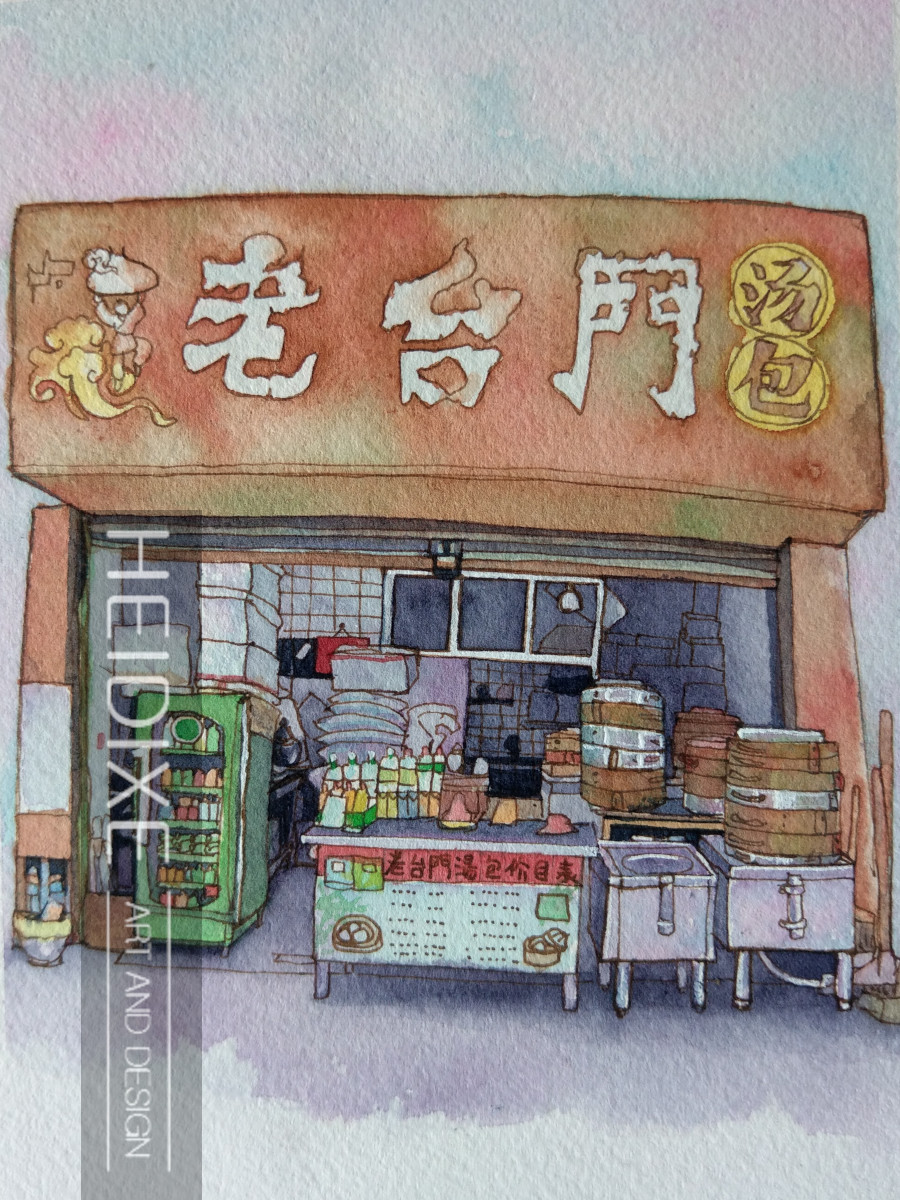 老台門
汤包
老台門湯包价目表
HEIDIXE
ART AND DESIGN